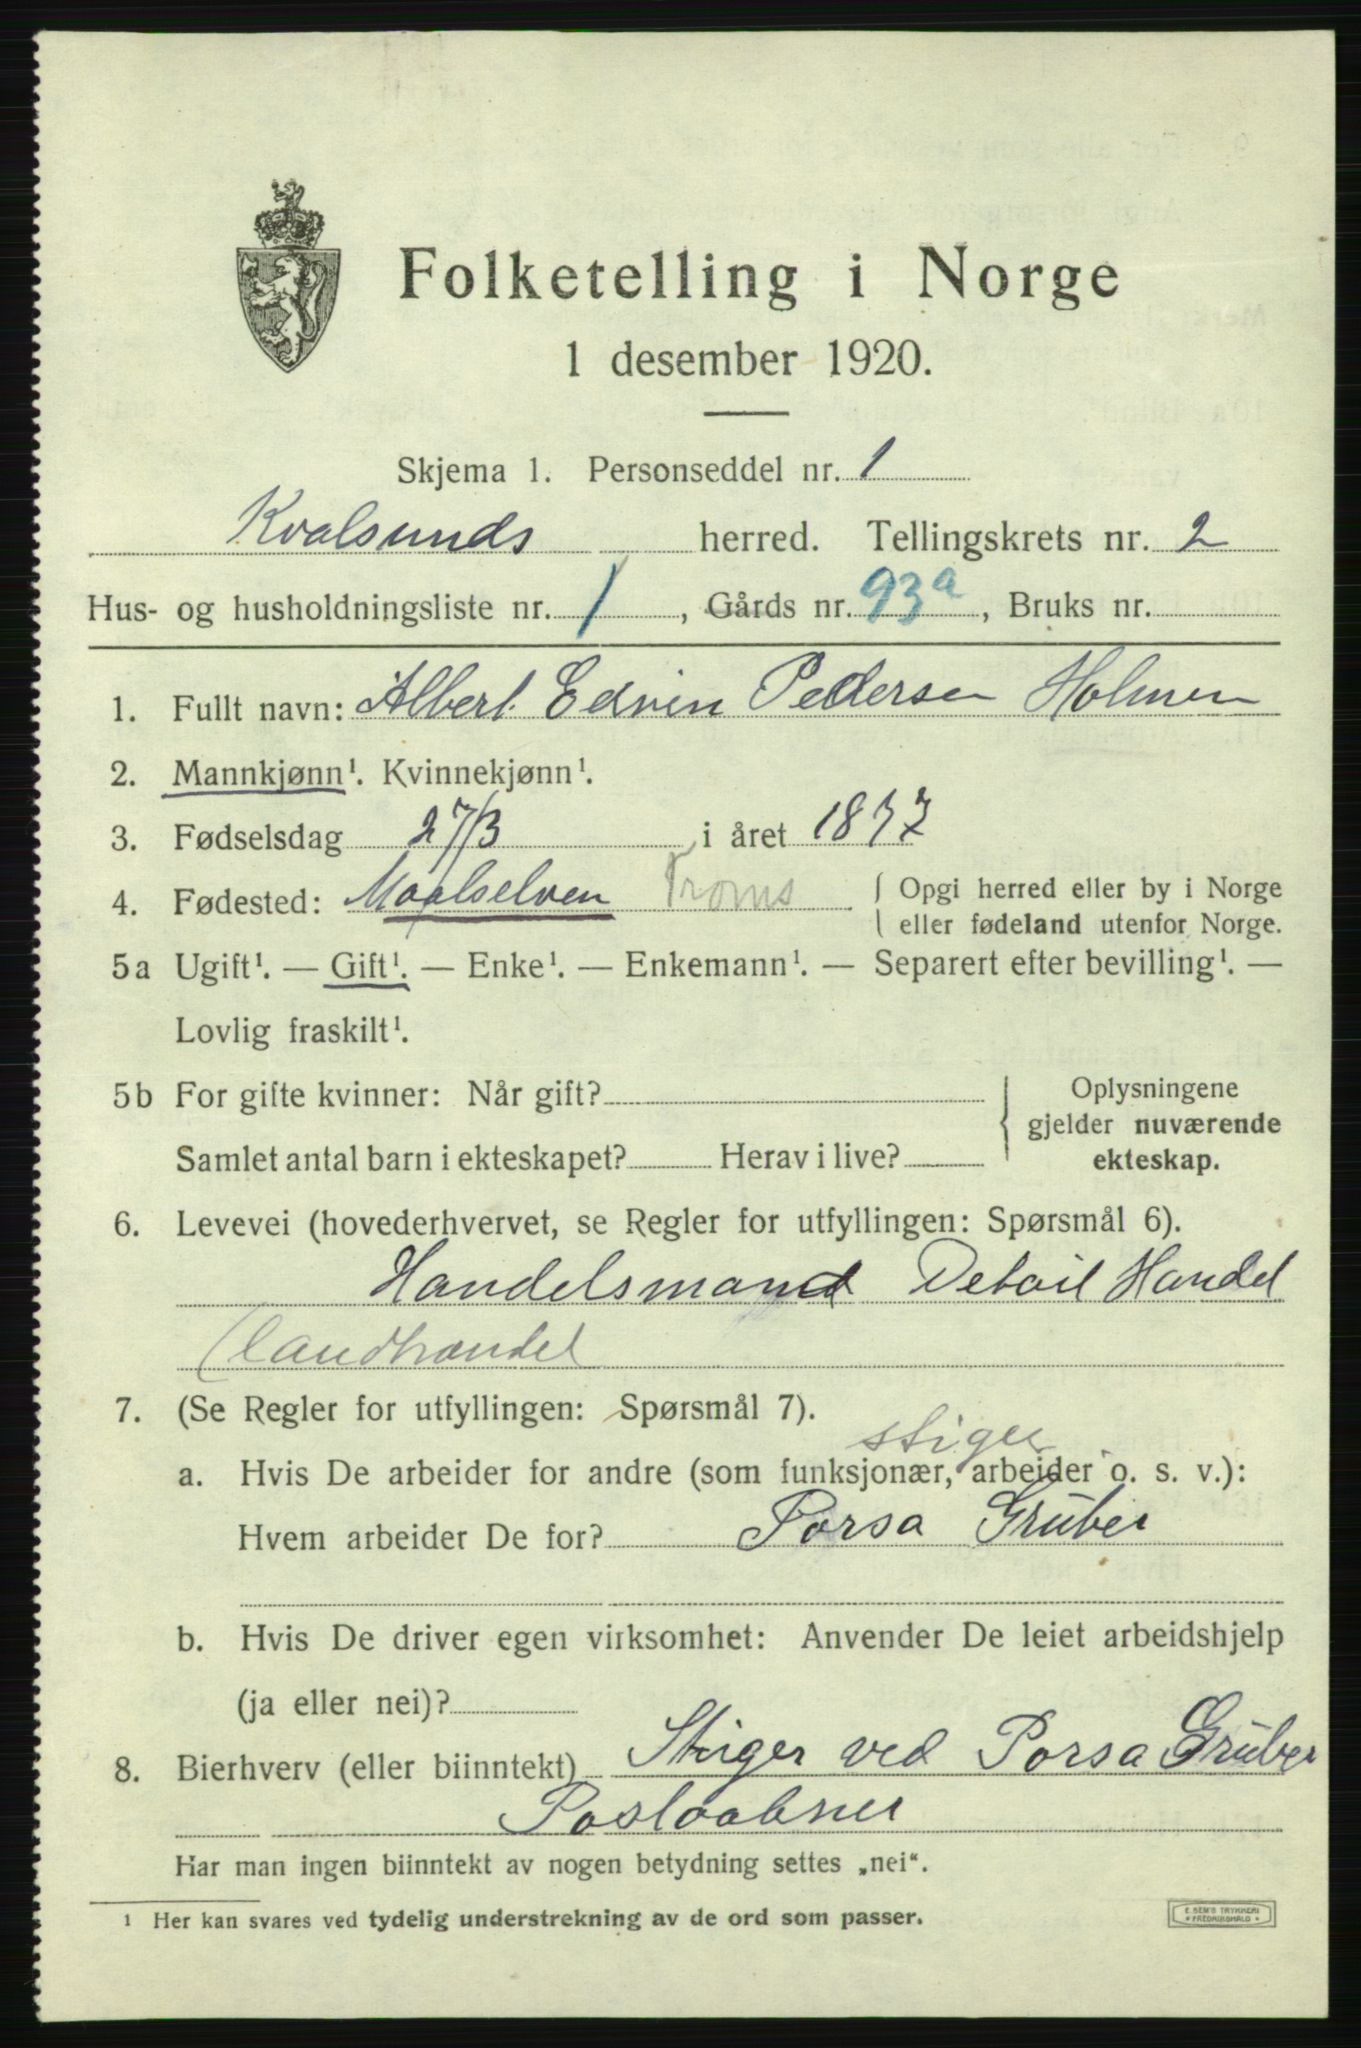 Folketelling i Norge
1 desember 1920.
Skjema 1. Personseddel nr. 1
Kvalsunds herred. Tellingskrets nr. 2
Hus- og husholdningsliste nr. 1, Gårds nr. 93a, Bruks nr.
1. Fullt navn: Albert Edvin Pedersen Holmen
2. Mannkjønn¹. Kvinnekjønn¹.
3. Fødselsdag 27/3 i året 1877
4. Fødested: Maalselven Troms { Opgi herred eller by i Norge
eller fødeland utenfor Norge.
5a Ugift¹. — Gift¹. — Enke¹. — Enkemann¹. — Separert efter bevilling¹. —
Lovlig fraskilt¹.
5b For gifte kvinner: Når gift? { Oplysningene
gjelder nuværende
Samlet antal barn i ekteskapet? Herav i live? ekteskap.
6. Levevei (hovederhvervet, se Regler for utfyllingen: Spørsmål 6).
Handelsmand Detail Handel
(landhandel
7. (Se Regler for utfyllingen: Spørsmål 7).
stiger
a. Hvis De arbeider for andre (som funksjonær, arbeider o. s. v.):
Hvem arbeider De for? Porsa Grüber
b. Hvis De driver egen virksomhet: Anvender De leiet arbeidshjelp
(ja eller nei)?
8. Bierhverv (eller biinntekt) Stiger ved Porsa Grüber
Postaabner
Har man ingen biinntekt av nogen betydning settes „nei“.
¹ Her kan svares ved tydelig understrekning av de ord som passer.
E. SEM'S TRYKKERI
FREDRIKSHALD